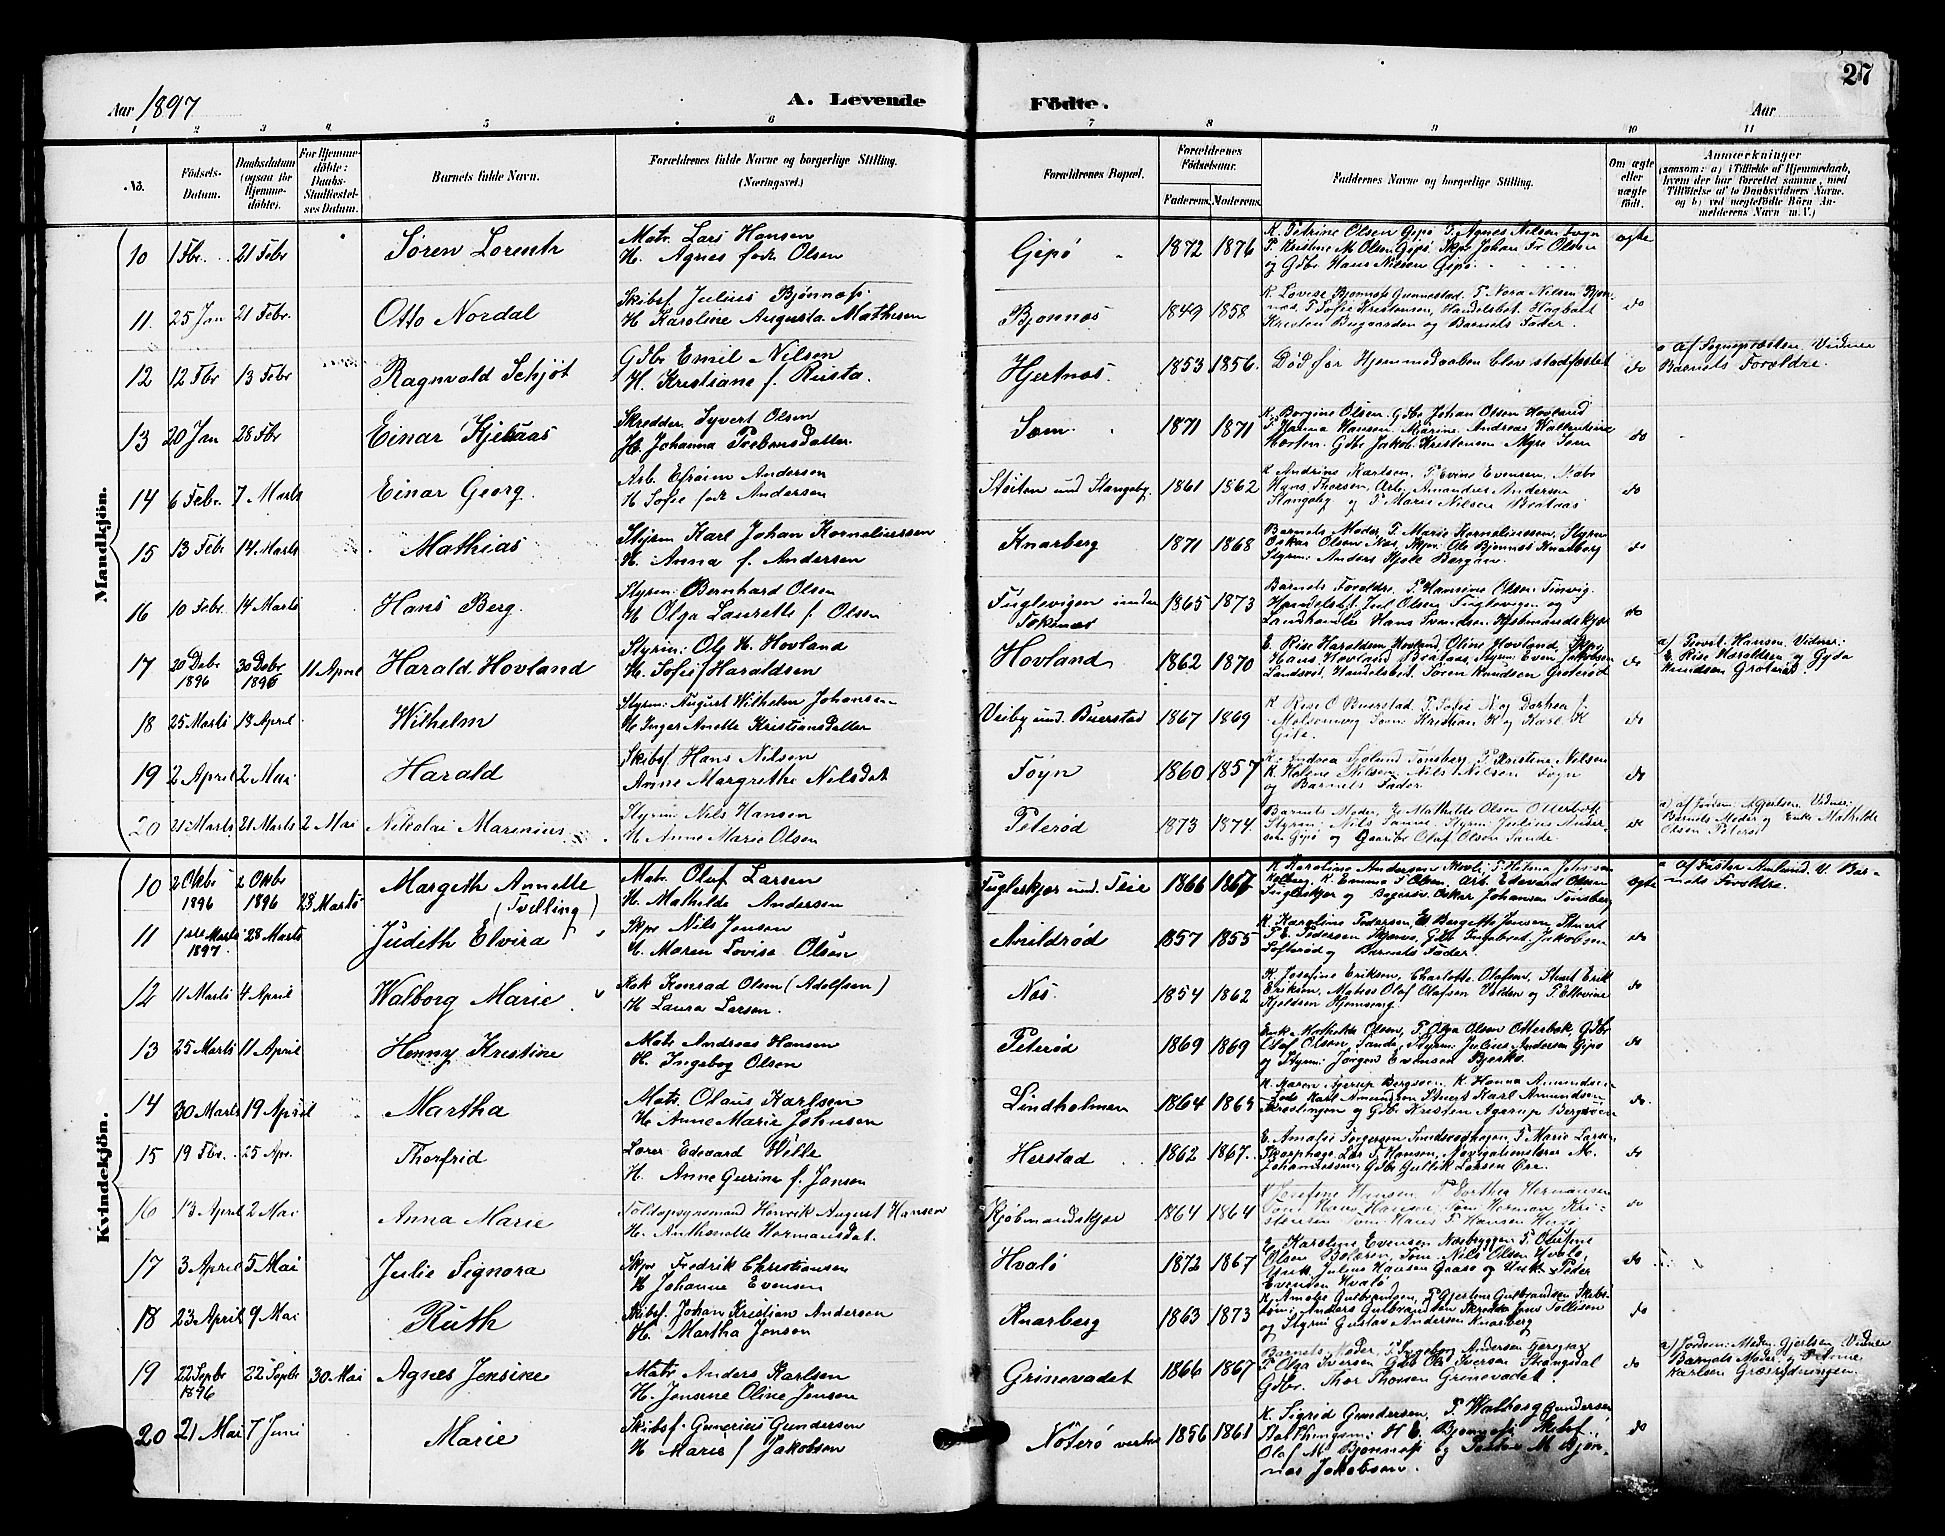 27
Aar 1897 A. Levende Födte. Aar
1 2 3 4 5 6 7 8 9 10 11
No. Födsels-Datum. Daabsdatum (ogsaa for Hjemmedöbte). For Hjemmedöbte: Daabs-Stadfæstelses Datum. Barnets fulde Navn. Forældrenes fulde Navne og borgerlige Stilling. (Næringsvei.) Forældrenes Bopæl. Forældrenes Födselsaar. Faderens. Moderens. Faddernes Navne og borgerlige Stilling. Om ægte eller uægte födt. Anmærkninger (saasom: a) i Tilfælde af Hjemmedaab, hvem der har forrettet samme, med Tilföielse af to Daabsvidners Navne. og b) ved uægtefödte Börn Anmelderens Navn m. V.)
Mandkjön.
10 1 Fbr. 21 Febr Sören Lorentz Matr. Lars Hansen
H. Agnes født Olsen Gipö 1872 1876 K. Petrine Olsen Gipö P. Agnes Nilsen Foyn
P. Kristine M. Olsen Gipö Skpr Johan Fr Olsen
og Gdbr Hans Nilsen Gipö. ægte
11. 25 Jan 21 Febr. Otto Nordal Skibsf. Julius Bjønnes
H Karoline Augusta Mathisen Bjonnes 1849 1858 K. Lovise Bjonnes Gunnestad. P Nora Nilsen Bjonnes. P Sofie Kristensen, Handelsbet. Hagbart
Kristen Bugaarden og Barnets Fader. do
12 12 Fbr 13 Febr Ragnvald Schjöt Gdbr Emil Nilsen
H. Kristiane f. Rusta. Hjertnes. 1853 1856. Død før Hjemmedaaben blev stadfæstet do a af Sognepræsten Vidner
Barnets Forældre.
13 20 Jan 28 Fbr Einar Kjelaas Skredder Syvert Olsen
H. Johanna Prebensdatter Sem. 1871 1871 K. Borgine Olsen. Gdbr Johan Olsen Hovland
P Hanna Hansen. Marine. Andreas
Horten. Gdbr Jakob Kristensen Myre Sem do
14 6 Febr. 7 Marts Einar Georg. Arb. Efraim Andersen
H Sofie født Andersen Støiten und Stangeby. 1861 1862 K Andrine Karlsen, P Evine Evensen,
Hans Thorsen, Arb. Amandus Andersen
Stangeby og P Marie Nilsen do
15 13 Febr 14 Marts Mathias Styrm Karl Johan Korneliussen
H. Anna f. Andersen Knarberg 1871 1868 Barnets Moder, P. Marie Korneliussen, Styrm
Oskar Olsen Nes, Skpr. Ole Bjonnes Knarberg
Styrm: Anders Bergan. do
16 10 Febr. 14 Marts Hans Berg. Styrm: Bernhard Olsen
H Olga Laurette f. Olsen Fuglevigen under
Tokenes 1865 1873 Barnets Forældre. P. Hansine Olsen Tinvig.
Handelsbet. Juel Olsen Fuglevigen og
Landhandler Hans Svendsen Kjøbmandskjær do
17 20 Debr
1896 30 Debr
1896 11 April Harald Hovland Styrm: Ole H. Hovland
H. Sofie f Haraldsen Hovland 1862 1870 E. Rise Haraldsen Hovland, Oline Hovland, Skpr
Hans Hovland Styrm Even Jakobsen
Sandsvæ, Handelsbet. Søren Knudsen Grøterød do a/ Hansen. Vidner:
E Rise Haraldsen og Gyda
Knudsen Grøterød.
18 25 Marts 19 April Wilhelm Styrm: August Wilhelm Johansen
H Inger Anette Kristiansdatter Veiby und. Buerstad 1867 1869 K Rise O Buerstad. P. Sofie N og Dorthea
Karl H
Gile. do
19 2 April 2 Mai Harald Skibsf. Hans Nilsen
Anne Margrethe Nilsdat Foyn 1860 1857 K. Andrea Tønsberg, P Kristine Nilsen
K. Helene Nilsen, Nils Nilsen Foyn
og Barnets Fader do
20 21 Marts 21 Marts 2 Mai Nikolai Marenius Styrm Nils Hansen
H Anne Marie Olsen Peterød 1873 1874. Barnets Moder, Mathilde Olsen Otterbæk
Styrm Nils Styrm Julius Andersen Gipö og Gaardbr Olaf Olsen Sande. do a) af Jordm: Gjertsen. Vidner:
Barnets Moder og Enke Mathilde
Olsen Peterød
Kvindekjön.
10 2 Oktbr
1896 2 Oktbr
1896 28 Marts Margith Annette
(Tvilling) Matr. Olaf Larsen
H. Mathilde Andersen Fugleskjær und. Teie 1866 1867 K Karoline Andersen Skovli,
K Emma T Olsen, Arb. Edvard Olsen
Fugleskjær og Oskar Johansen Tønsberg ægte a af Amlund. V. Barnets Forældre.
11 1ste Marts
1897. 28 Marts Judith Elvira Skpr Nils Jensen
H. Maren Lovise Olsen Arildrød 1857 1855 K. Karoline Pedersen, Bergette Jensen, Stuert
Pedersen Gdbr Ingebret Jakobsen
Lofterød og Barnets Fader. do
12 11 Marts 4 April Walborg Marie Kok Konrad Olsen (Adolfsen)
H Laura Larsen. Nes. 1854 1862 K. Josefine Eriksen, Charlotte Olafsen, Stuert Erik
Eriksen, Matros Olaf Olafsen og P. Ellevine
Kjeldsen Hjemseng. do
13 25 Marts 11 April Henny Kristine Matr Andreas Hansen
H. Ingebog Olsen Peterød 1869 1869 Enke Mathilde Olsen, P. Olga Olsen Otterbæk, Gdbr
Olaf Olsen, Sande, Styrm: Julius Andersen Gipö
og Styrm: Jørgen Evensen Bjerkö. do
14 30 Marts 19 April Martha Matr. Olaus Karlsen
H Anne Marie Johnsen Lindholmen 1864 1863 K Maren Agerup Bergsøen, K. Hanna Amundsen
Lods Karl Amundsen Stuert Karl Amundsen
og Gdbr Kristen Agerup Bergsøen do.
15 19 Fbr. 25 Apr. Thorfrid Lærer Edevard Wille
H. Anne Gurine f. Jensen Herstad 1862 1867. E. Amalie Torgersen P. Marie Larsen
Lars T Hansen, Navigationslærer M.
Johannessen, Gdbr Gullik Larsen Øre. do
16 13 April 2 Mai Anna Marie Toldopsynsmand Henrik August Hansen
H. Anthonette Hermansdat. Kjøbmandskjær 1864 1864 K Josefine Hansen, P. Dorthea Hermansen
Søm Hans Hansen Søm Herman Kristensen Søm. Hans T Hansen do
17 3 April 5 Mai Julie Signora Skpr Fredrik Christiansen
H Johanne Evensen Hvalö 1872 1867 E. Karoline Evensen Næsbyggen P. Olufine
Olsen Bolæren, Søm. Nils Olsen Hvalö,
Unk. Julius Hansen Graasö og Unk. Peder
Evensen Hvalö do
18 23 April 9 Mai Ruth Skibsf. Johan Kristian Andersen
H. Martha Jenson Knarberg 1863 1873 K. Amalie Gulbrandsen, P Gjestine Gulbrandsen Skibstøm; Anders Gulbrandsen Skredder Jens Tollisen
og Styrm Gustav Andersen Knarberg do
19 22 Septbr
1896 22 Septbr 30 Mai Agnes Jensine Matr Anders Karlsen
H. Jensine Oline Jensen Grinevadet 1866 1867 Barnets Moder, P. Ingeborg Andersen
P Olga Iversen Gdbr Ole Iversen Skongsdal
Gdbr. Thor Thorsen Grinevadet. do a/ Jordem: Gjertsen Vidner
Barnets Moder og
Karlsen
20 21 Mai 7 Juni Marie Skibsf. Gunerius Gundersen
H Marie f Jakobsen Nöterö vestre 1856 1861 K. Sigrid Gundersen, P. Walborg Gundersen
H E. Bjønnes Skibsf.,
Olaf M Bjønnes og M Bjønnes Jakobsen. do